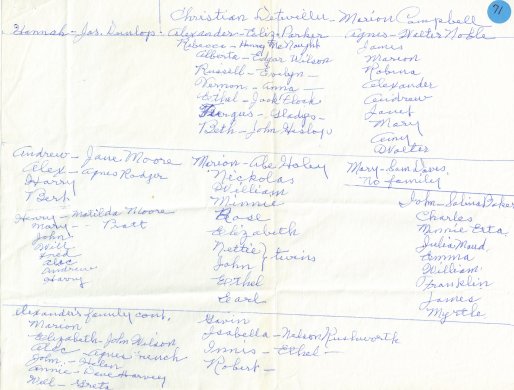 71
Christian Detwiller - Marion Campbell
Hannah - Jas. Dunlop - Alexander - Eliz Parker
Rebecca - Henry McNaught
Alberta - Edgar Wilson
Russell - Evelyn -
Vernon - Anna -
Ethel - Jack Flook
Fergus - Gladys -
Beth - John Hislop
Agnes - Walter Noble
James
Marion
Robina
Alexander
Andrew
Janet
Mary
Amy
Walter
Andrew - Jane Moore
Alex - Agnes Rodger
Harry
Bert
Henry - Matilda Moore
Mary - Pratt
John
Will
Fred
Alec
Andrew
Harry
Marion - Abe Haley
Nickolas
William
Minnie
Rose
Elizabeth
Nettie } twins
John
Ethel
Earl
Mary - Sam Davis
No family
John - Salina Baker
Charles
Minnie Erta
Julia Maud
Emma
William
Franklin
James
Myrtle
Alexander's family cont.
Marion
Elizabeth - John Nelson
Alec - Agnes French
John - Helen
Annie - Dave Harvey
Wal - Greta
Gavin
Isabella - Nelson Rushworth
Innis - Ethel -
Robert -